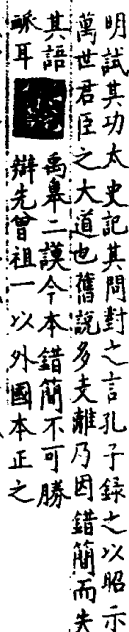 明試其功太史記其問對之言孔子錄之以昭示
萬世君臣之大道也舊說多支離乃因錯簡而失
其語　禹皋二謨今本錯簡不可勝
脈耳　辯先曾祖一以外國本正之